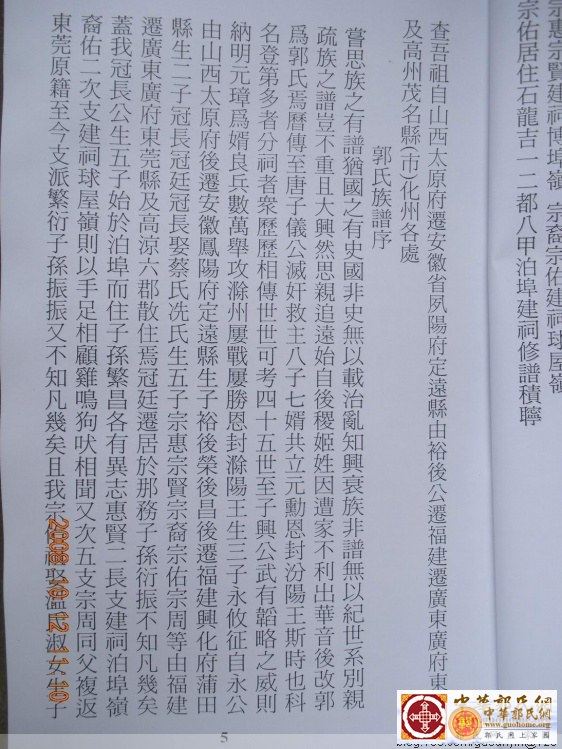 宗惠宗賢建祠博埠嶺 宗裔宗佑建祠球屋嶺
宗佑居住石龍吉一二都八甲泊埠建祠修譜積聹
查吾祖自山西太原府遷安徽省夙陽府定遠縣由裕後公遷福建遷廣東廣府東
及高州茂名縣(市)化州各處
郭氏族譜序
嘗思族之有譜猶國之有史國非史無以載治亂知興衰族非譜無以紀世系別親
疏族之譜豈不重且大興然思親追遠始自後稷姬姓因遭家不利出華音後改郭
爲郭氏焉曆傳至唐子儀公滅奸救主八子七婿共立元勳恩封汾陽王斯時也科
名登第多者分祠者衆歷歷相傳世世可考四十五世至子興公武有韜略之威則
納明元璋爲婿良兵數萬舉攻滁州屢戰屢勝恩封滁陽王生三子永攸征自永公
由山西太原府後遷安徽鳳陽府定遠縣生子裕後榮後昌後遷福建興化府蒲田
縣生二子冠長冠廷冠長娶蔡氏冼氏生五子宗惠宗賢宗裔宗佑宗周等由福建
遷廣東廣府東莞縣及高涼六郡散住焉冠廷遷居於那務子孫衍振不知凡幾矣
蓋我冠長公生五子始於泊埠而住子孫繁昌各有異志惠賢二長支建祠泊埠嶺
裔佑二次支建祠球屋嶺則以手足相顧雞鳴狗吠相聞又次五支宗周同父複返
東莞原籍至今支派繁衍子孫振振又不知凡幾矣且我宗
氏淑女生子
2008/10/12 11:10
5
中華郭氏網
中華郭氏網
www.guochina.com
郭氏網上家園